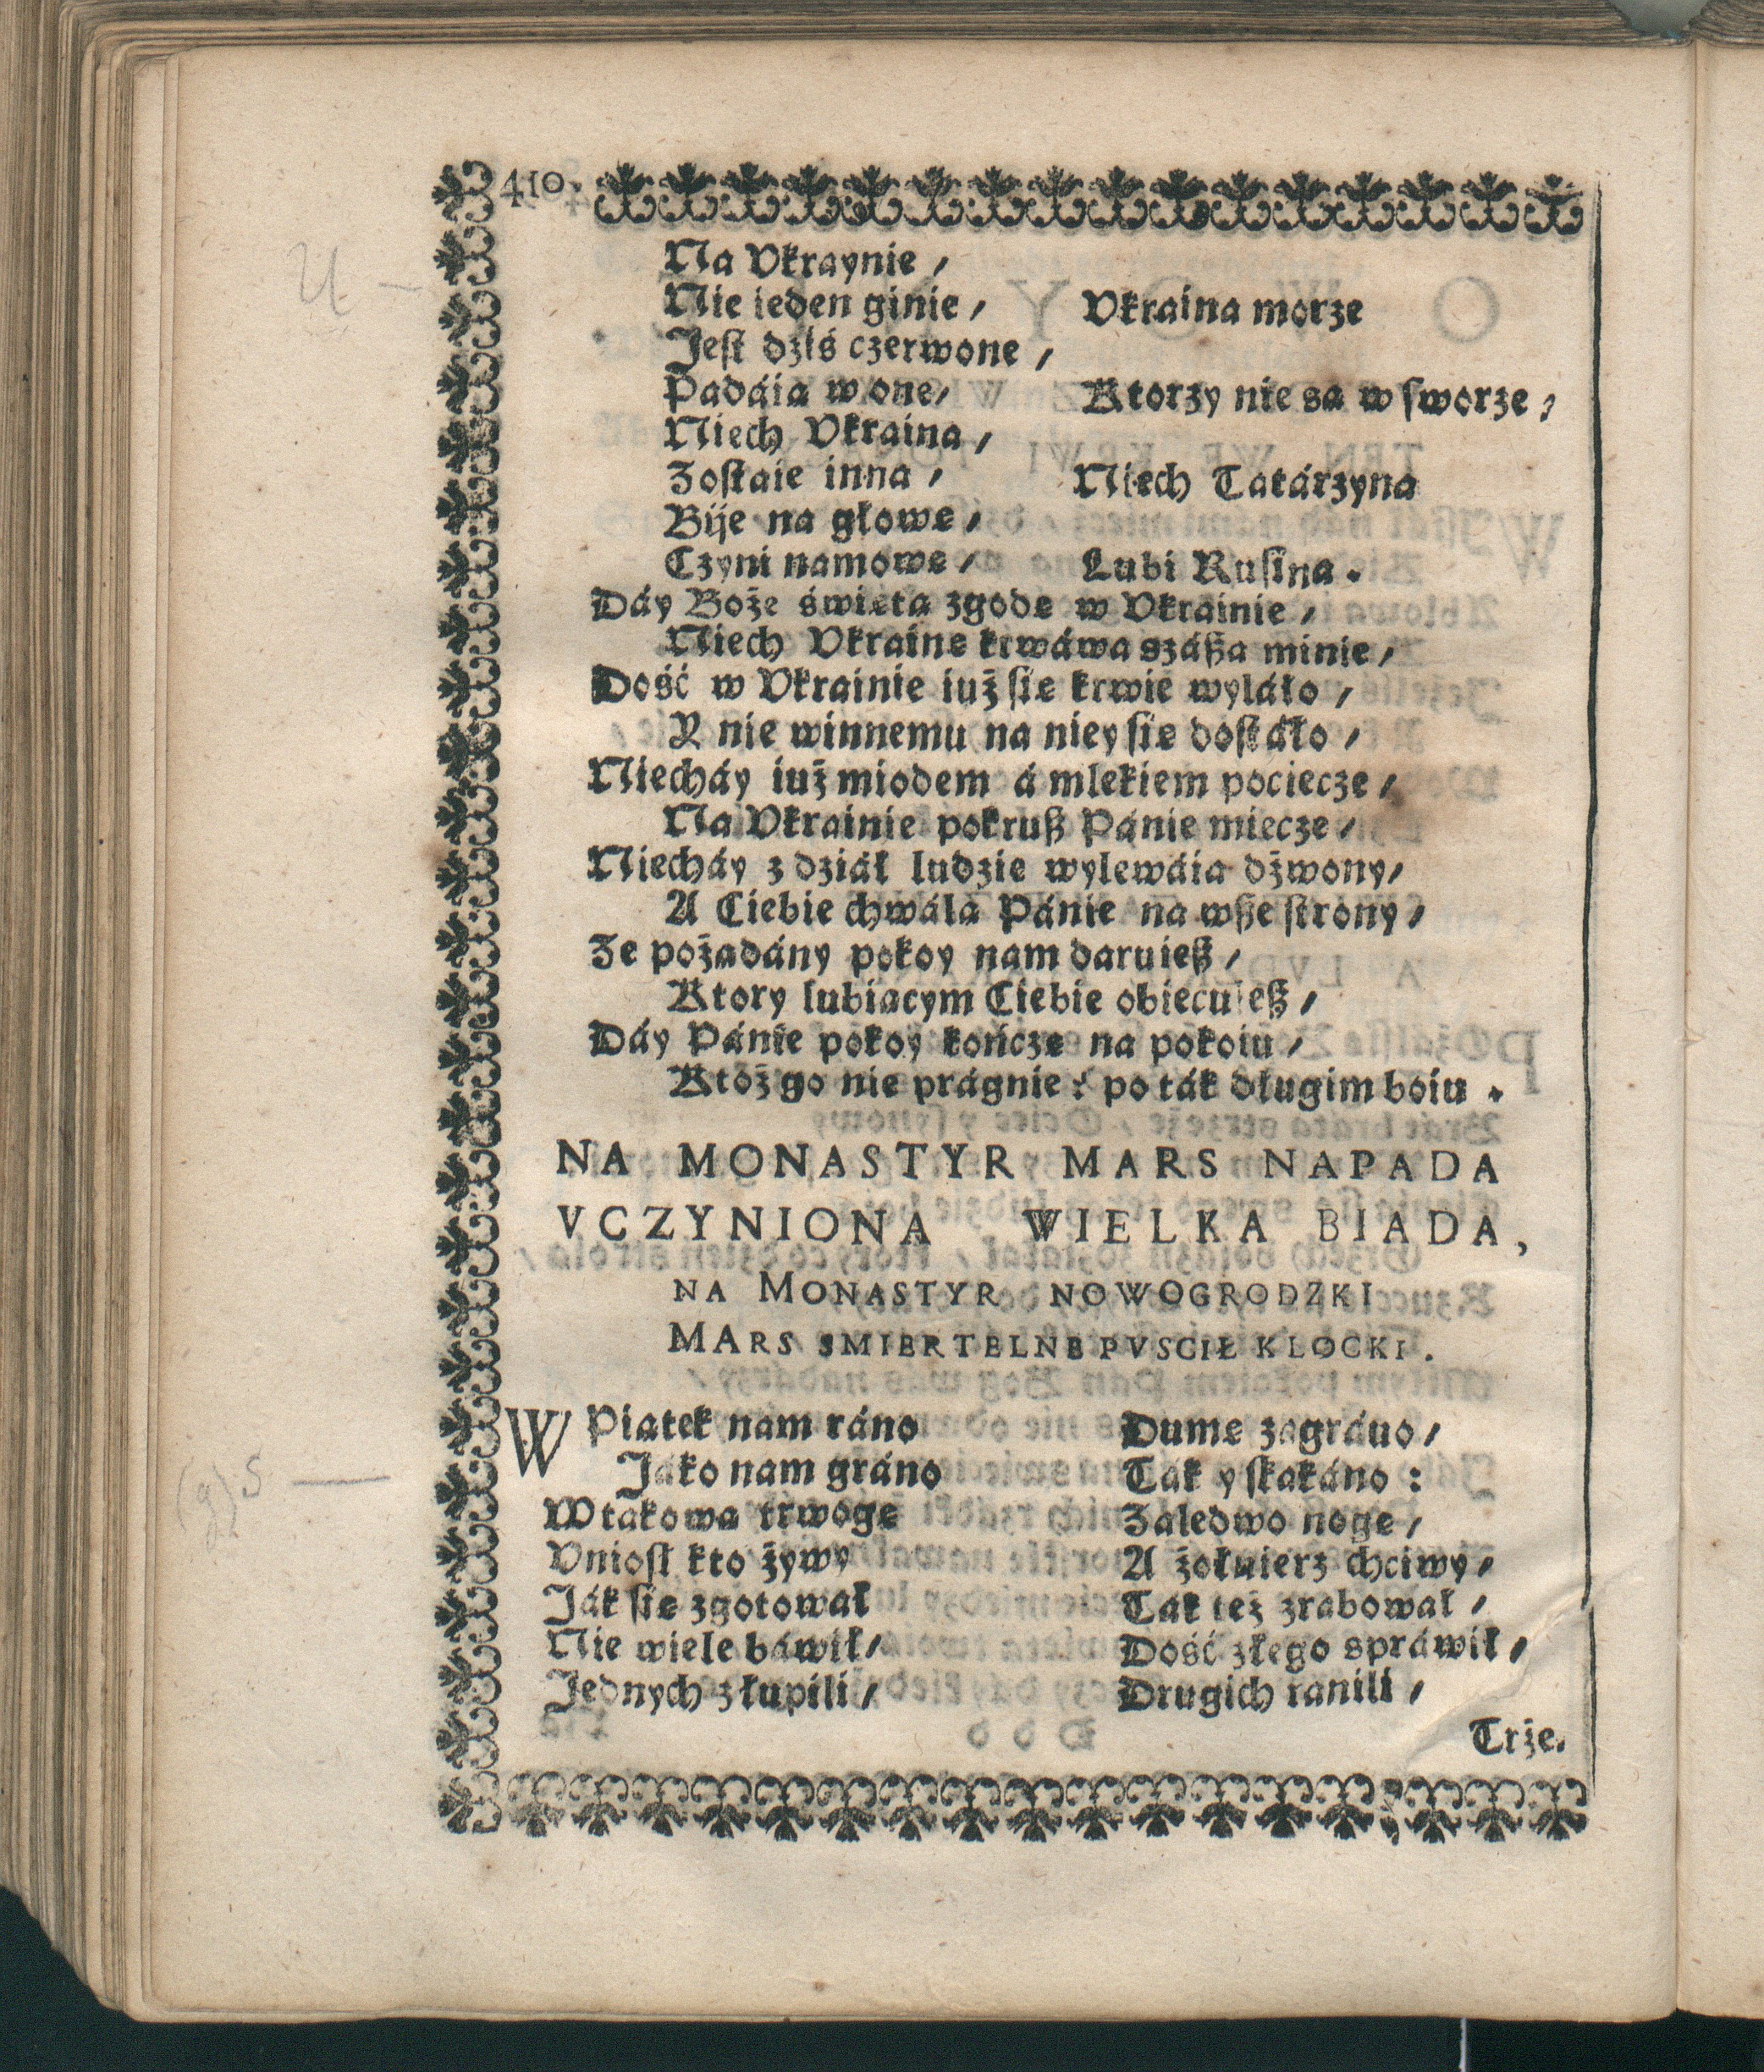 410.
Na Vkraynie /
Nie ieden ginie / Vkraina morze
Jest dźiś czerwone /
Padáia w one / Ktorzy nie sa w sworze /
Niech Vkraina /
Zostaie inna / Niech Tatárzyna
Bije na głowe /
Czyni namowe / Lubi Rusina.
Dáy Boże świeta zgode w Vkrainie /
Niech Vkraine krwáwa száßa minie /
Dość w Vkrainie iuż sie krwie wyláło /
Y nie winnemu na niey sie dostáło /
Niecháy iuż miodem á mlekiem pociecze /
Na Vkrainie pokruß Pánie miecze /
Niecháy z dziáł ludzie wylewáia dźwony /
A Ciebie chwála Pánie na wße strony /
Ze pożadány pokoy nam daruieß /
Ktory lubiacym Ciebie obiecuieß /
Dáy Pánie pokoy kończe na pokoiu /
Ktoż go nie prágnie? po ták długim boiu.
NA MONASTYR MARS NAPADA
VCZYNIONA WIELKA BIADA,
NA MONASTYR NOWOGRODZKI
MARS SMIERTELNE PVSCIŁ KLOCKI.
W Piatek nam ráno Dume zagráno /
Jáko nam gráno Tak y skakáno :
W takowa trwoge Zaledwo noge /
Vniosł kto żywy A żołnierz chciwy /
Ják sie zgotował Tak też zrabował /
Nie wiele báwił / Dość złego spráwił /
Jednych złupili / Drugich ranili /
Trze.